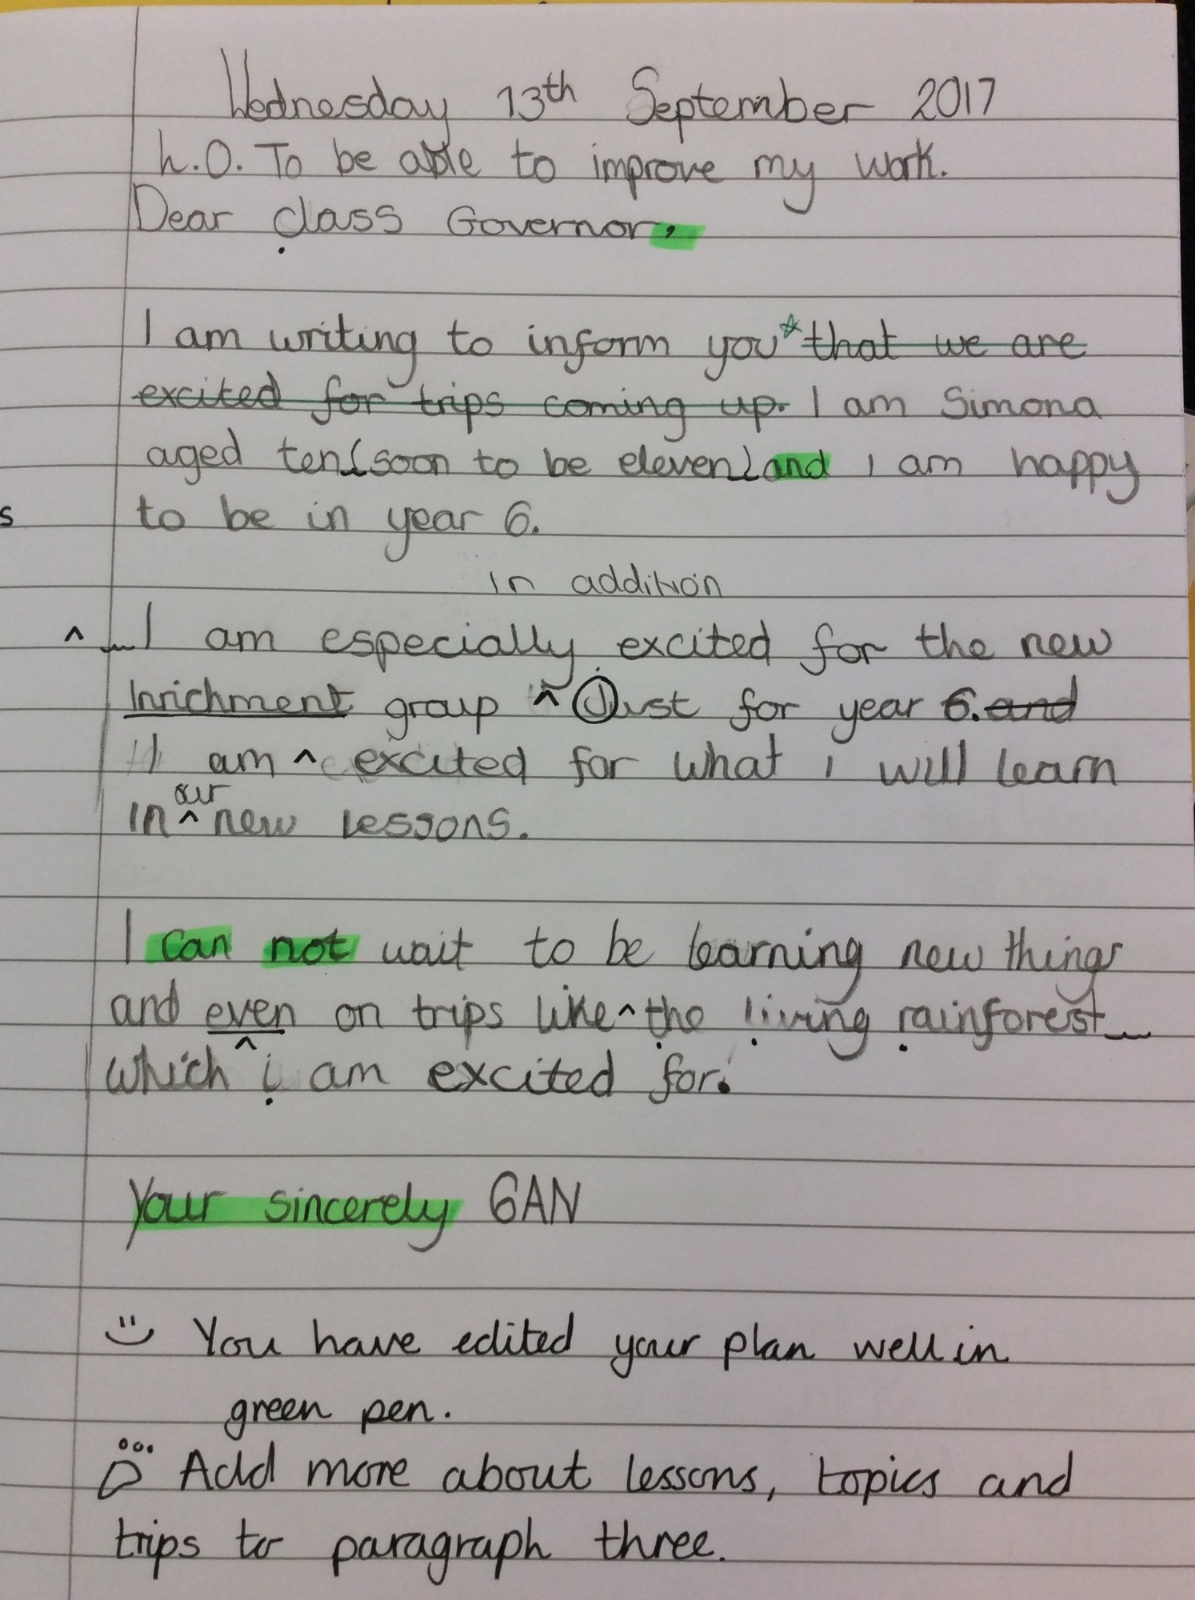 Wednesday 13th September 2017
L.O. To be able to improve my work.
Dear class Governor,
I am writing to inform you* that we are
excited for trips coming up. I am Simona
aged ten (soon to be eleven) and i am happy
s
to be in year 6.
in addition
^ I am especially excited for the new
Inrichment group ^ Just for year 6. and
I am ^ excited for what i will learn
our
in ^ new lessons.
I can not wait to be learning new things
and even on trips like ^ the living rainforest
which ^ i am excited for.
Your sincerely 6AN
You have edited your plan well in
green pen.
Add more about lessons, topics and
trips to paragraph three.